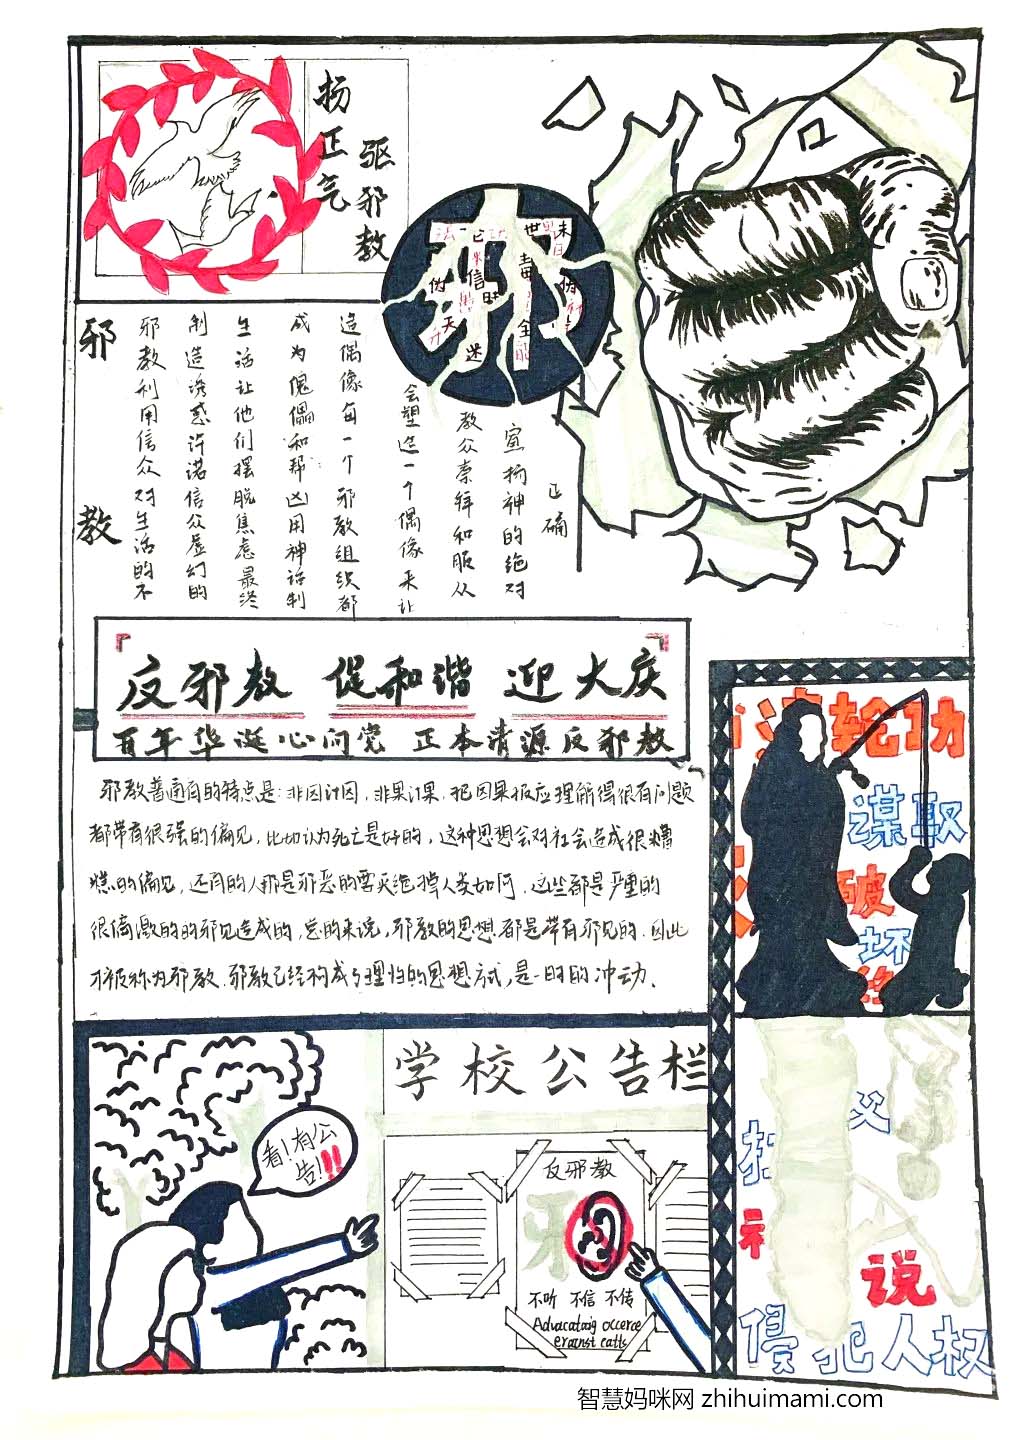 扬正气
驱邪教
邪
教
邪教利用信众对生活的不
制造诱惑许诺信众虚幻的
生活让他们摆脱焦虑最终
成为傀儡和帮凶用神话制
造偶像每一个邪教组织都
会塑造一个偶像来让
教众崇拜和服从
宣扬神的绝对
正确
邪
『反邪教 促和谐 迎大庆』
百年华诞心向党 正本清源反邪教
邪教普遍有的特点是:非因计因,非果计果,把因果报应理解得很有问题
都带有很强的偏见,比如认为死亡是好的,这种思想会对社会造成很糟
糕的偏见,还有的人那是邪恶的要灭绝
人类如何,这些都是严重的
很偏激的的邪见造成的,总的来说,邪教的思想都是带有邪见的.因此
才被称为邪教.邪教已经构成了理性的思想方式,是一时的冲动.
轮功
谋取
破
坏
说
侵犯人权
学校公告栏
看!有公
告!!!
反邪教
不听 不信 不传
智慧妈咪网 zhihuimami.com